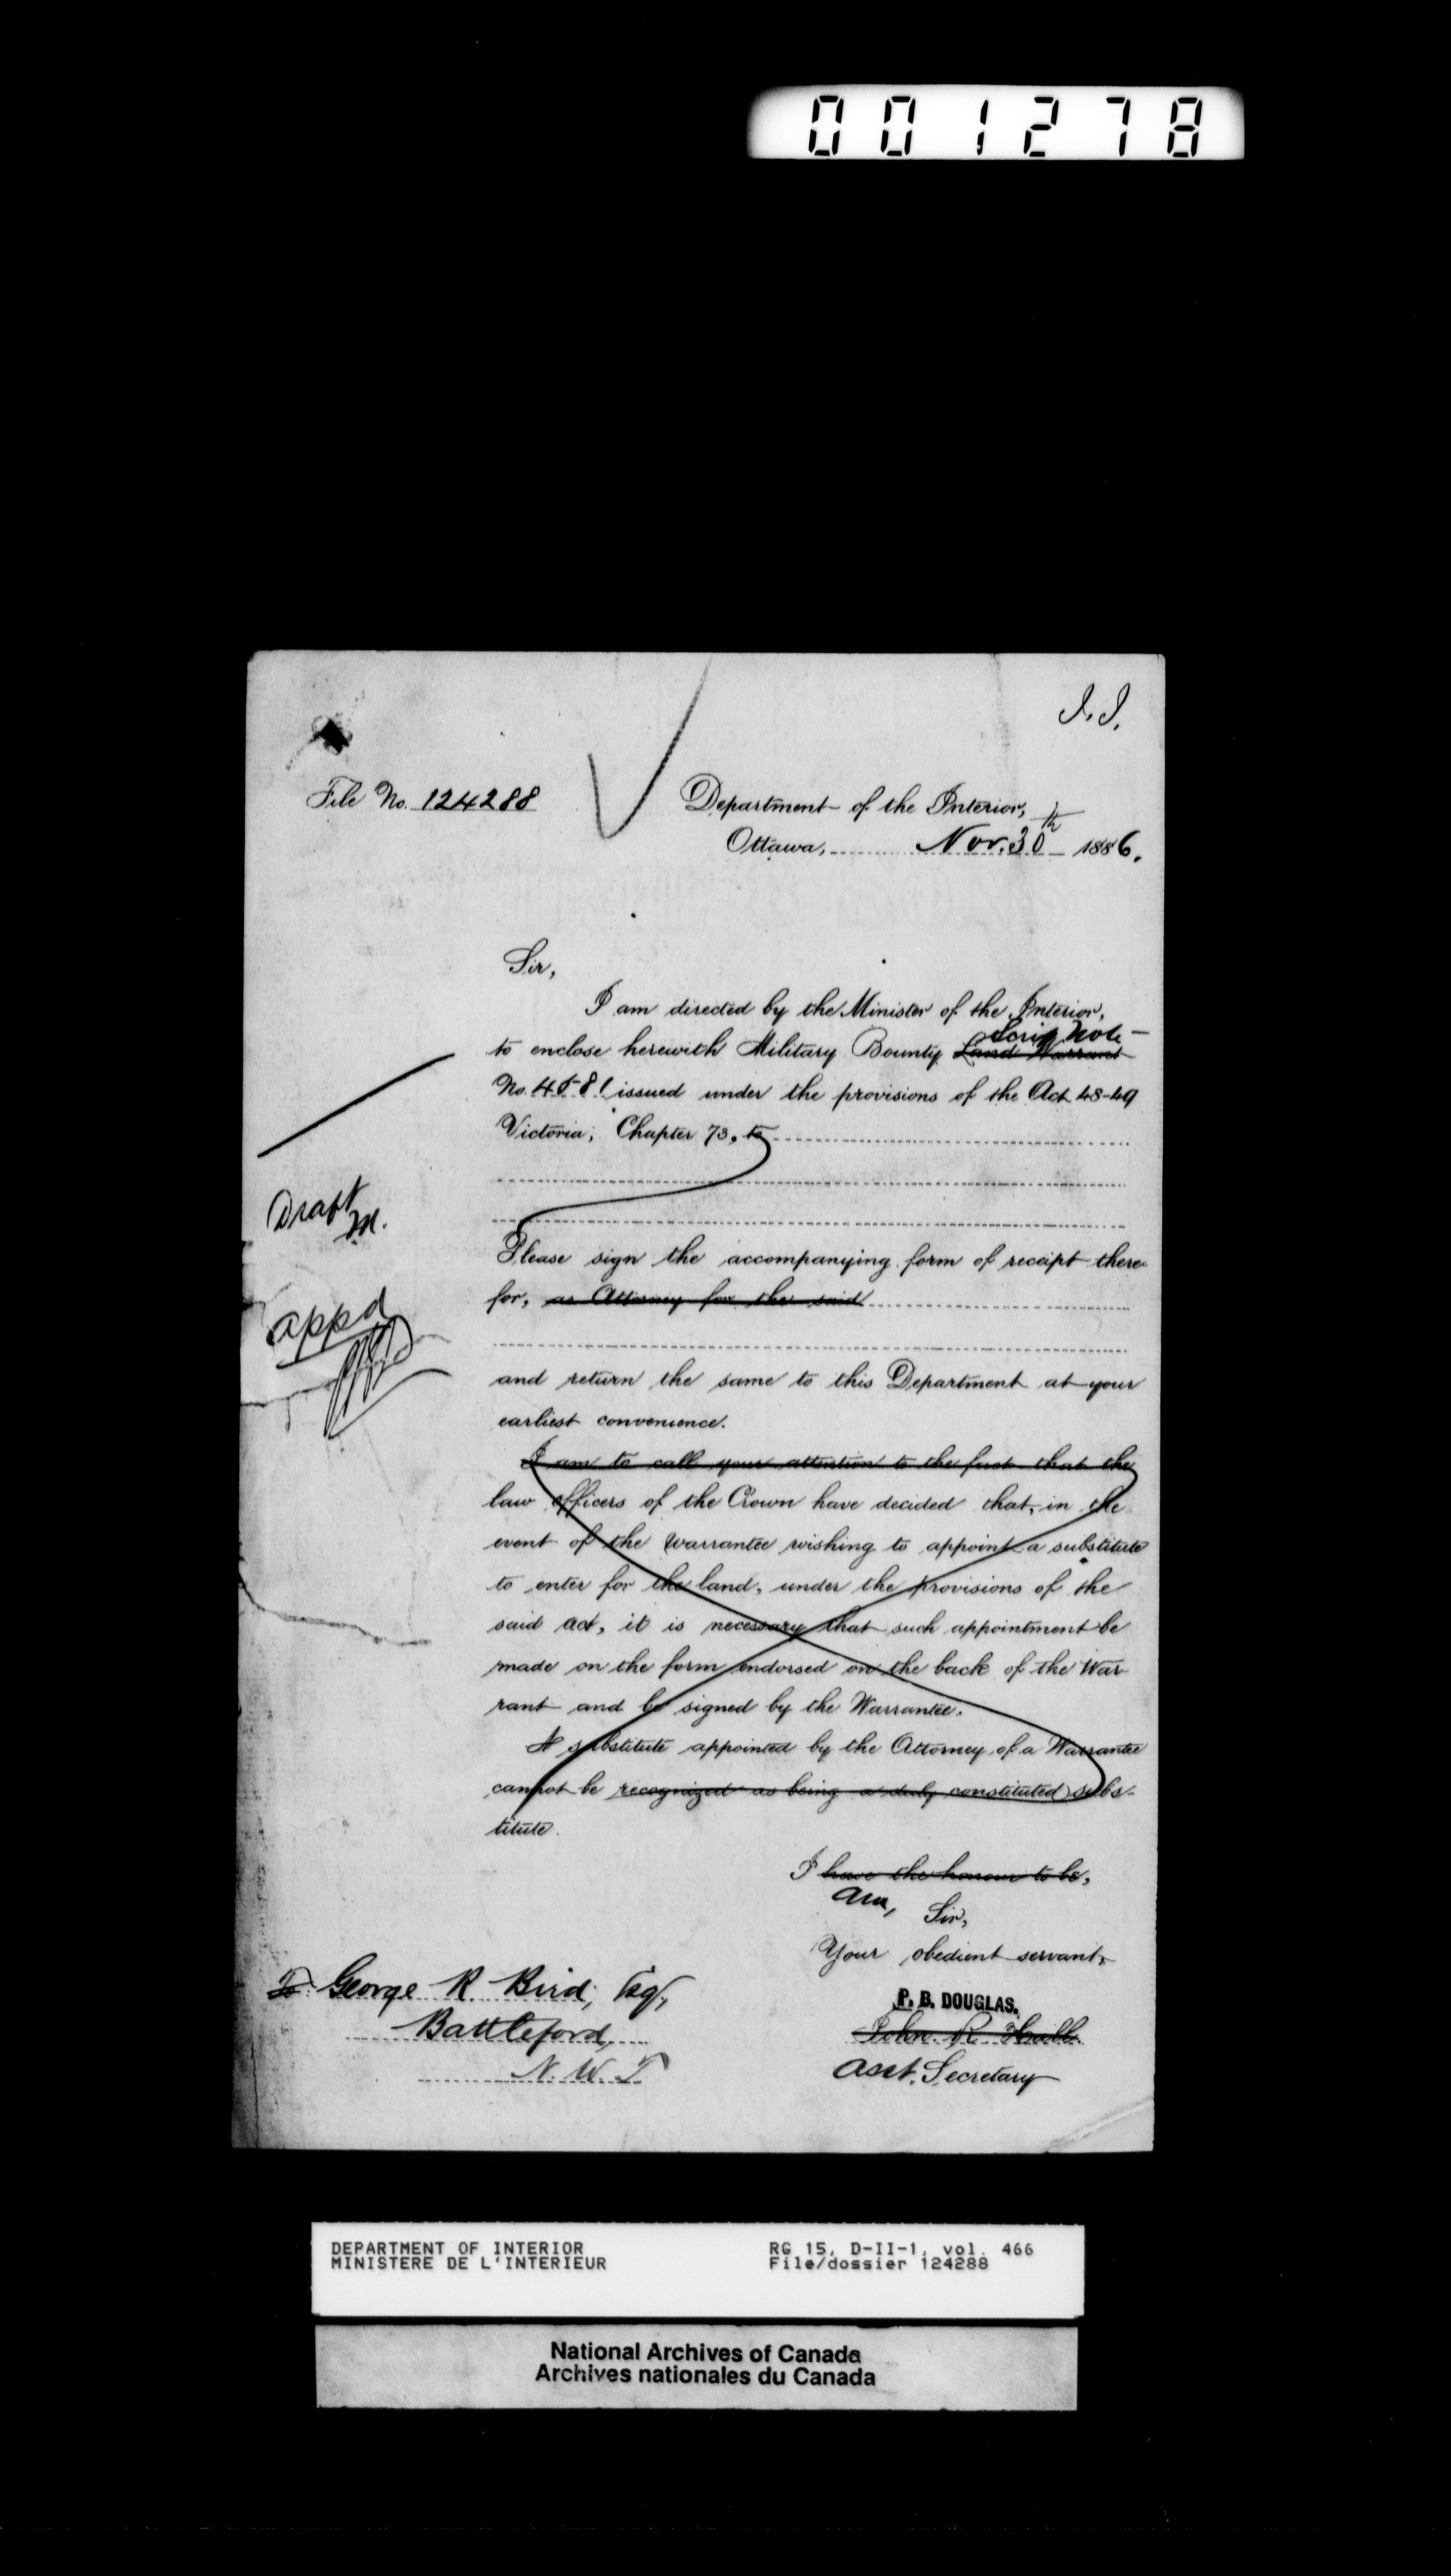 001278
J.J.
File No. 124288
Department of the Interior,
Ottawa, Nov. 30th 1886.
Sir,
I am directed by the Minister of the Interior,
Scrip Note
to enclose herewith Military Bounty Land Warrant
No. 4581 issued under the provisions of the Act 48-49
Victoria, Chapter 73, to
Draft
M.
Please sign the accompanying form of receipt there-
for, as Attorney for the said
appd
and return the same to this Department at your
earliest convenience.
I am to call your attention to the fact that the
law officers of the Crown have decided that, in the
event of the Warrantee wishing to appoint a substitute
to enter for the land, under the provisions of the
said act, it is necessary that such appointment be
made on the form endorsed on the back of the War-
rant and be signed by the Warrantee.
A substitute appointed by the Attorney of a Warrantee
cannot be recognized as being a duly constituted subs-
titute.
I have the honour to be,
am,
Sir,
Your obedient servant,
To George R. Bird, Esq,
Battleford,
N. W. T
P. B. DOUGLAS.
John R. Hall
Asst. Secretary
DEPARTMENT OF INTERIOR
MINISTERE DE L'INTERIEUR
RG 15, D-II-1, vol. 466
File/dossier 124288
National Archives of Canada
Archives nationales du Canada